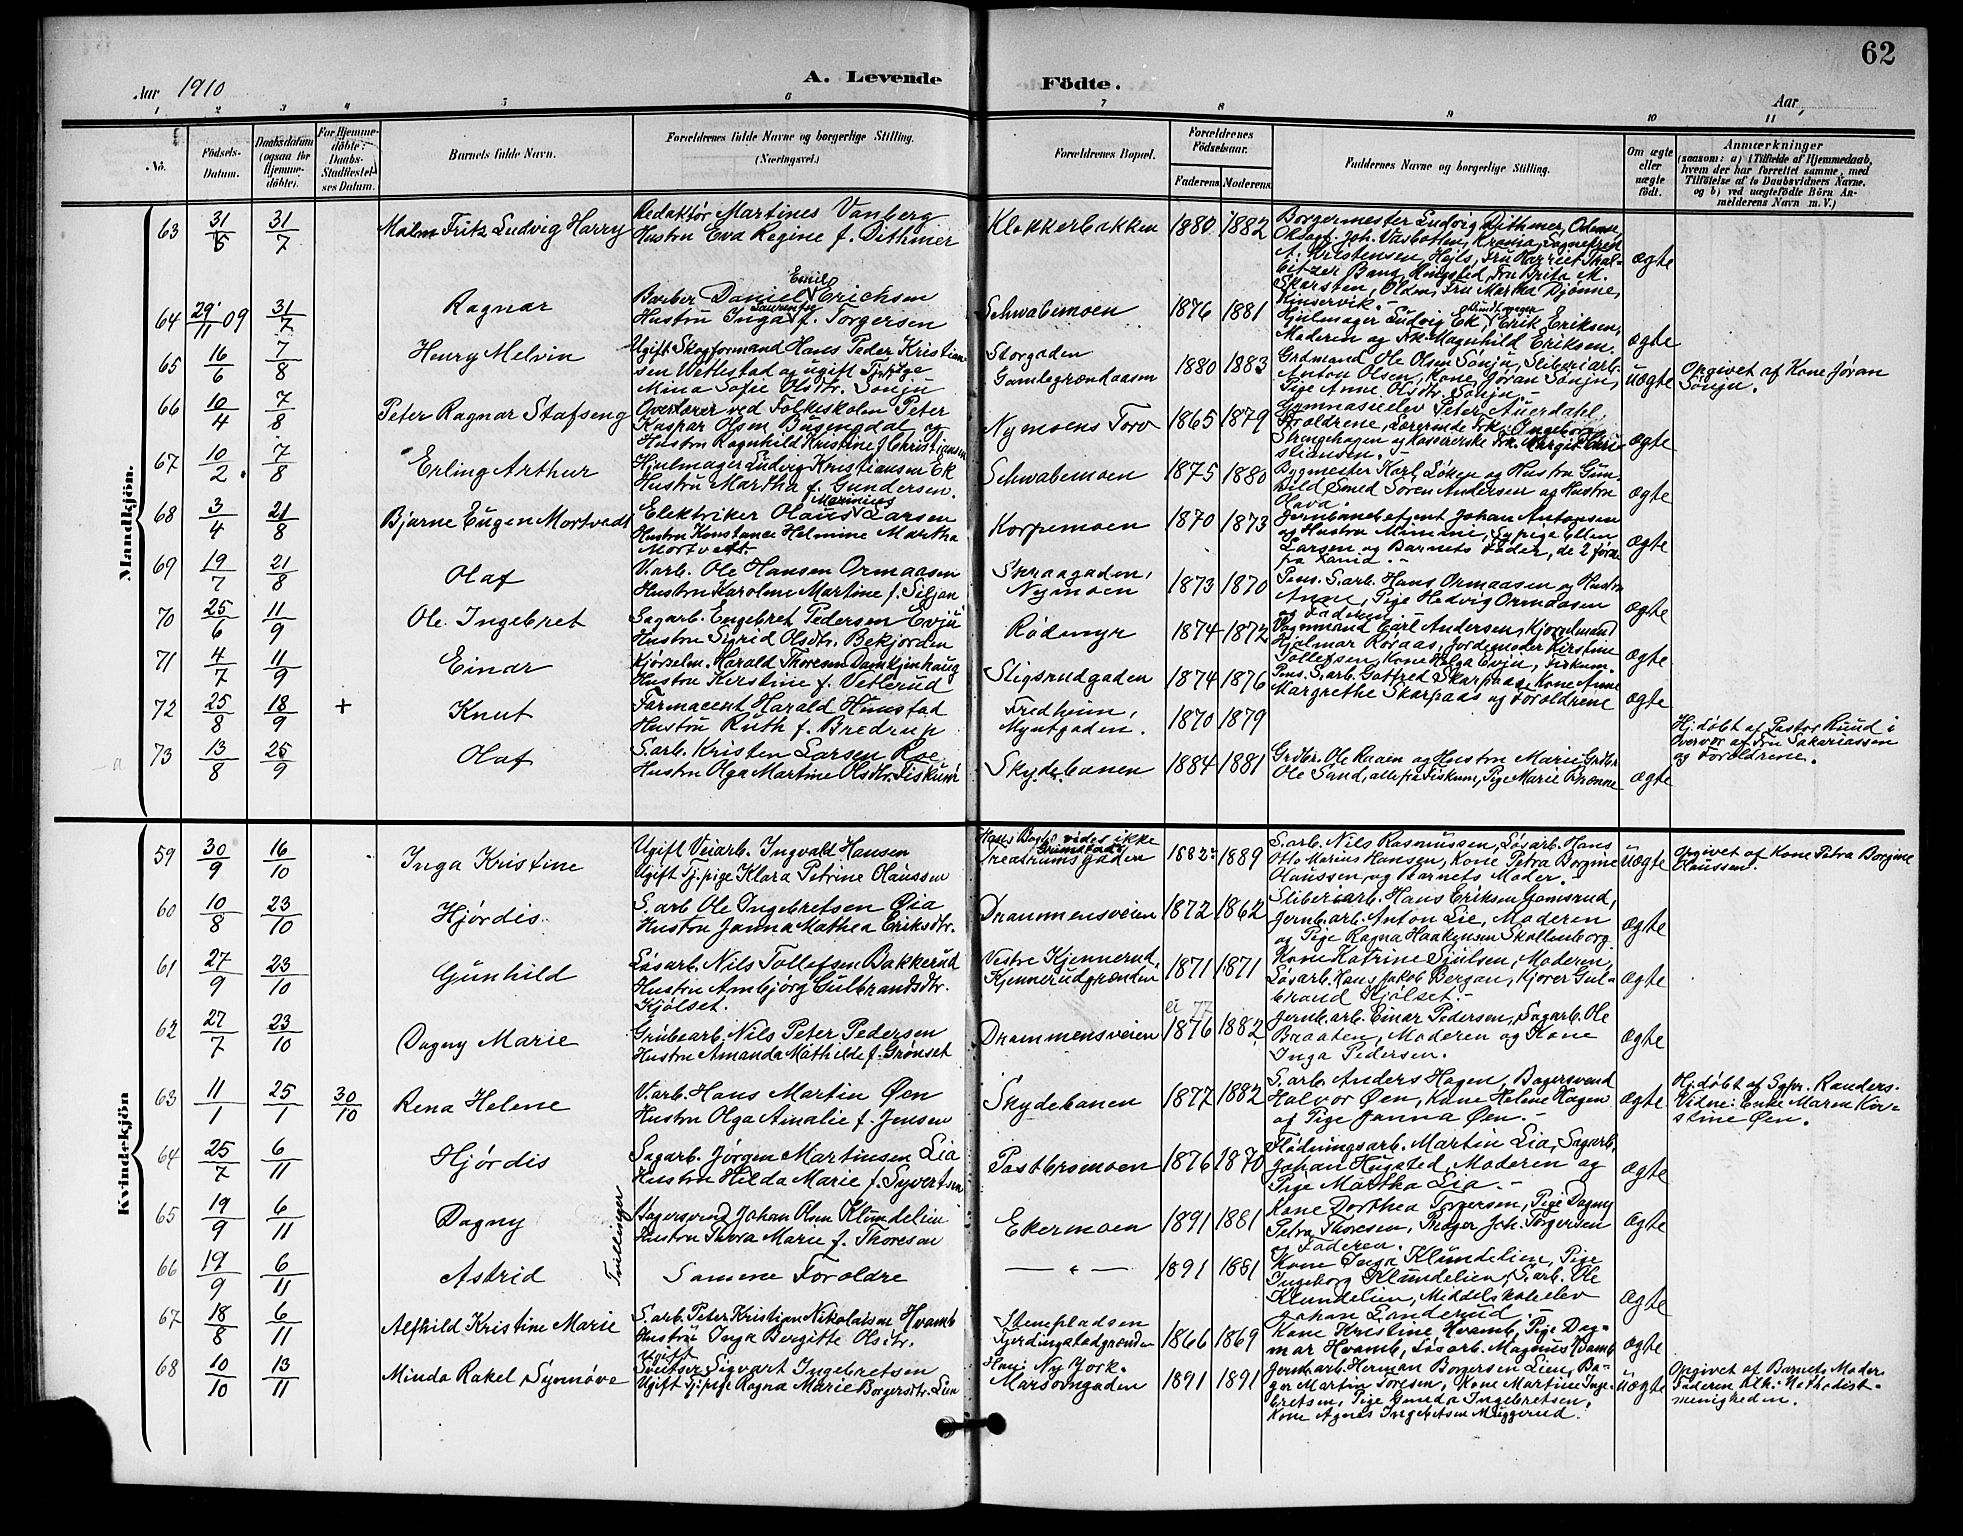 62
Aar 1910
A. Levende Födte.
Aar
1 2 3 4 5 6 7 8 9 10 11
No.
Födsels-Datum.
Daabsdatum (ogsaa for Hjemme-döbte).
For Hjemme-döbte: Daabs-Stadfæstel-ses Datum.
Barnets fulde Navn.
Forældrenes fulde Navne og borgerlige Stilling. (Næringsvei.)
Forældrenes Bopæl.
Forældrenes Födselsaar.
Faderens Moderens
Faddernes Navne og borgerlige Stilling.
Om ægte eller uægte födt.
Anmærkninger
(saasom: a) i Tilfælde af Hjemmedaab, hvem der har forrettet samme, med Tilföielse af to Daabsvidners Navne, og b) ved uægtefödte Börn Anmelderens Navn m. V.)
Mandkjön.
63 31/5 31/7 Malm Fritz Ludvig Harry
Redaktør Martines Vanberg
Hustru Eva Regine f. Dithmer
Klokkerbakken 1880 1882
Borgermester Ludvig Dithmer, Odense,
ægte
64 29/11 09 31/7 Ragnar
Barber Daniel Emil Erichsen
Hustru Inga Laurentse f. Torgersen
Schwabemoen 1876 1881
Hjulmager Ludvig Ek, Erik Eriksen,
Moderen og Frk. Magnhild Eriksen.
ægte
65 16/6 7/8 Henry Melvin
Ugift Skogformand Hans Peder Kristian-
sen Wettestad og ugift Tj.pige
Mina Sofie Olsdtr. Sønju
Storgaden
Gamlegrændaasen 1880 1883
Grdmand Ole Olsen Sønju, Sliberiarb.
Anton Olsen, Kone Jøran Sønju,
Pige Anne Olsdtr. Sønju.-
uægte
Opgivet af Kone Jøran
Sønju.
66 10/4 7/8 Peter Ragnar Stafseng
Overlærer ved Folkeskolen Peter
Kaspar Olsen Busengdal og
Hustru Ragnhild Kristine f. Christiansen
Nymoens Torv 1865 1879
Gymnasieelev Peter Auerdahl,
Forældrene, Lærerinde Frk. Ingeborg
ægte
67 10/2 7/8 Erling Arthur
Hjulmager Ludvig Kristiansen Ek
Hustru Martha f. Gundersen.
Schwabemoen 1875 1880
Bygmester Karl Løken og Hustru Gun-
hild Smed Søren Andersen og Hustru
Olava.
ægte
68 3/4 21/8 Bjarne Eugen Mortvedt
Elektriker Olaus Marinius Larsen
Hustru Konstance Helmine Martha
Mortvedt.
Korpemoen 1870 1873
Jernbanebetjent Johan Antonsen
og Hustru Mamine, Sypige Ellen
Larsen og Barnets Fader, de 2 første
ægte
69 19/7 21/8 Olaf
V.arb. Ole Hansen Ormaasen
Hustru Karoline Martine f. Siljan
Skraagaden,
Nymoen 1873 1870
Pens. S.arb. Hans Ormaasen og Hustru
Anne, Pige Hedvig Ormaasen
og Faderen
ægte
70 25/6 11/9 Ole Ingebret
Sagarb. Engebret Pedersen Evju
Hustru Sigrid Olsdtr. Bekjorden
Rødmyr 1874 1872
Vognmand Carl Andersen, Kjørselmand
Hjalmar Roraas, Jordemoder Kirstine
Tollefsen, Kone Helga Evju, Fiskum.
ægte
71 4/7 11/9 Einar
Kjørselm. Harald Thoresen Damkjenhaug
Hustru Kirstine f. Vetlerud
Stigsrudgaden 1874 1876
Pens. S.arb. Gotfred Skarpaas, Kone Anne
Margrethe Skarpaas og Forældrene
ægte
72 25/8 18/9 + Knut
Farmaceut Harald Hunstad
Hustru Ruth f. Bredrup
Fredheim,
Myntgaden. 1870 1879
Hj.døbt af Pastor Ruud i
Overvær af Fru Sakariassen
og Forældrene.
73 13/8 25/9 Olaf
S.arb. Kristen Larsen Roe
Hustru Olga Martine Olsdtr. Fiskum
Skydebanen 1884 1881
Grdbr. Ole Raaen og Hustru Marie, Grdbr.
Ole Sand, alle fra Fiskum, Pige Marie Brænne
ægte
Kvindekjön
59 30/9 16/10 Inga Kristine
Ugift Veiarb. Ingvald Hansen
Ugift Tj.pige Klara Petrine Olaussen
Hans Bopæl vides ikke
1882 1889
S.arb. Nils Rasmussen, Løsarb. Hans
Otto Marius Hansen, Kone Petra Borgine
Olaussen og Barnets Moder.
uægte
Opgivet af Kone Petra Borgine
Olaussen.
60 10/8 23/10 Hjørdis
S.arb. Ole Ingebretsen Øia
Hustru Janna Mathea Eriksdtr.
Drammensveien 1872 1862
Sliberiarb. Hans Eriksen Gomsrud,
Jernb.arb. Anton Lie, Moderen
og Pige Ragna Haakensen Skollenborg
ægte
61 27/9 23/10 Gunhild
Løsarb. Nils Tollefsen Bakkerud
Hustru Ambjørg Gulbrandsdtr.
Kjølset.
Vestre Kjennerud,
Kjennerudgrænden 1871 1871
Kone Katrine Sjulsen, Moderen,
Løsarb. Hans Jakob Bergan, Kjører Gul-
brand Kjølset.-
ægte
62 27/7 23/10 Dagny Marie
Grubearb. Nils Peter Pedersen
Hustru Amanda Mathilde f. Grønset
Drammensveien 1876 1882
Jernb.arb. Einar Pedersen, Sagarb. Ole
Braaten, Moderen og Kone
Inga Pedersen.
ægte
63 11/1 25/1 30/10 Rena Helene
V.arb. Hans Martin Øen
Hustru Olga Amalie f. Jensen
Skydebanen 1877 1882
S.arb. Anders Hagen, Bagersvend
Halvor Øen, Kone Helene Hagen
og Pige Janna Øen.-
ægte
Hj.døbt af Sgpr. Randers.
Vidne: Enke Maren Kir-
stine Øen.
64 25/7 6/11 Hjørdis
Sagarb. Jørgen Martinsen Lia
Hustru Hilda Marie f. Syvertsen
Pastersmoen 1876 1870
Flødningsarb. Martin Lia, Sagarb.
Johan Hugsted, Moderen og
Pige Martha Lia.-
ægte
Tvillinger
65 19/9 6/11 Dagny
Bagersvend Johan Olsen Klundelien
Hustru Thora Marie f. Thoresen
Ekermoen 1891 1881
Kone Dorthea Torgersen, Pige Dagny
Petra Thoresen, Prager Joh. Torgersen
og Faderen.
ægte
66 19/9 6/11 Astrid
Samme Forældre
— " — 1891 1881
Kone Inga Klundelien, Pige
Ingeborg Klundelien, S.arb. Ole
Klundelien, Middelskoleelev
Johan Landerud.-
ægte
67 18/8 6/11 Alfhild Kristine Marie
S.arb. Peter Kristian Nikolaisen Hvamb
Hustru Inga Bergitte Olsdtr.
Stempladsen
Tjerdingstadgrænden 1866 1869
Kone Kristine Hvamb, Pige Dag-
mar Hvamb, Løsarb. Magnus Hvamb
ægte
68 10/10 13/11 Minda Rakel Synnøve
Ugift
Sveitser Sigvart Ingebretsen
Ugift Tj.pige Ragna Marie Borgersdtr. Lien
Han: New York.
Marsovngaden 1891 1891
Jernb.arb. Herman Borgersen Lien, Ba-
ger Martin Toresen, Kone Martine Inge-
bretsen, Pige Gunda Ingebretsen,
Kone Agnes Ingebretsen Muggerud.
uægte
Opgivet af Barnets Moder.
Faderen tilh. Methodist-
menigheden.